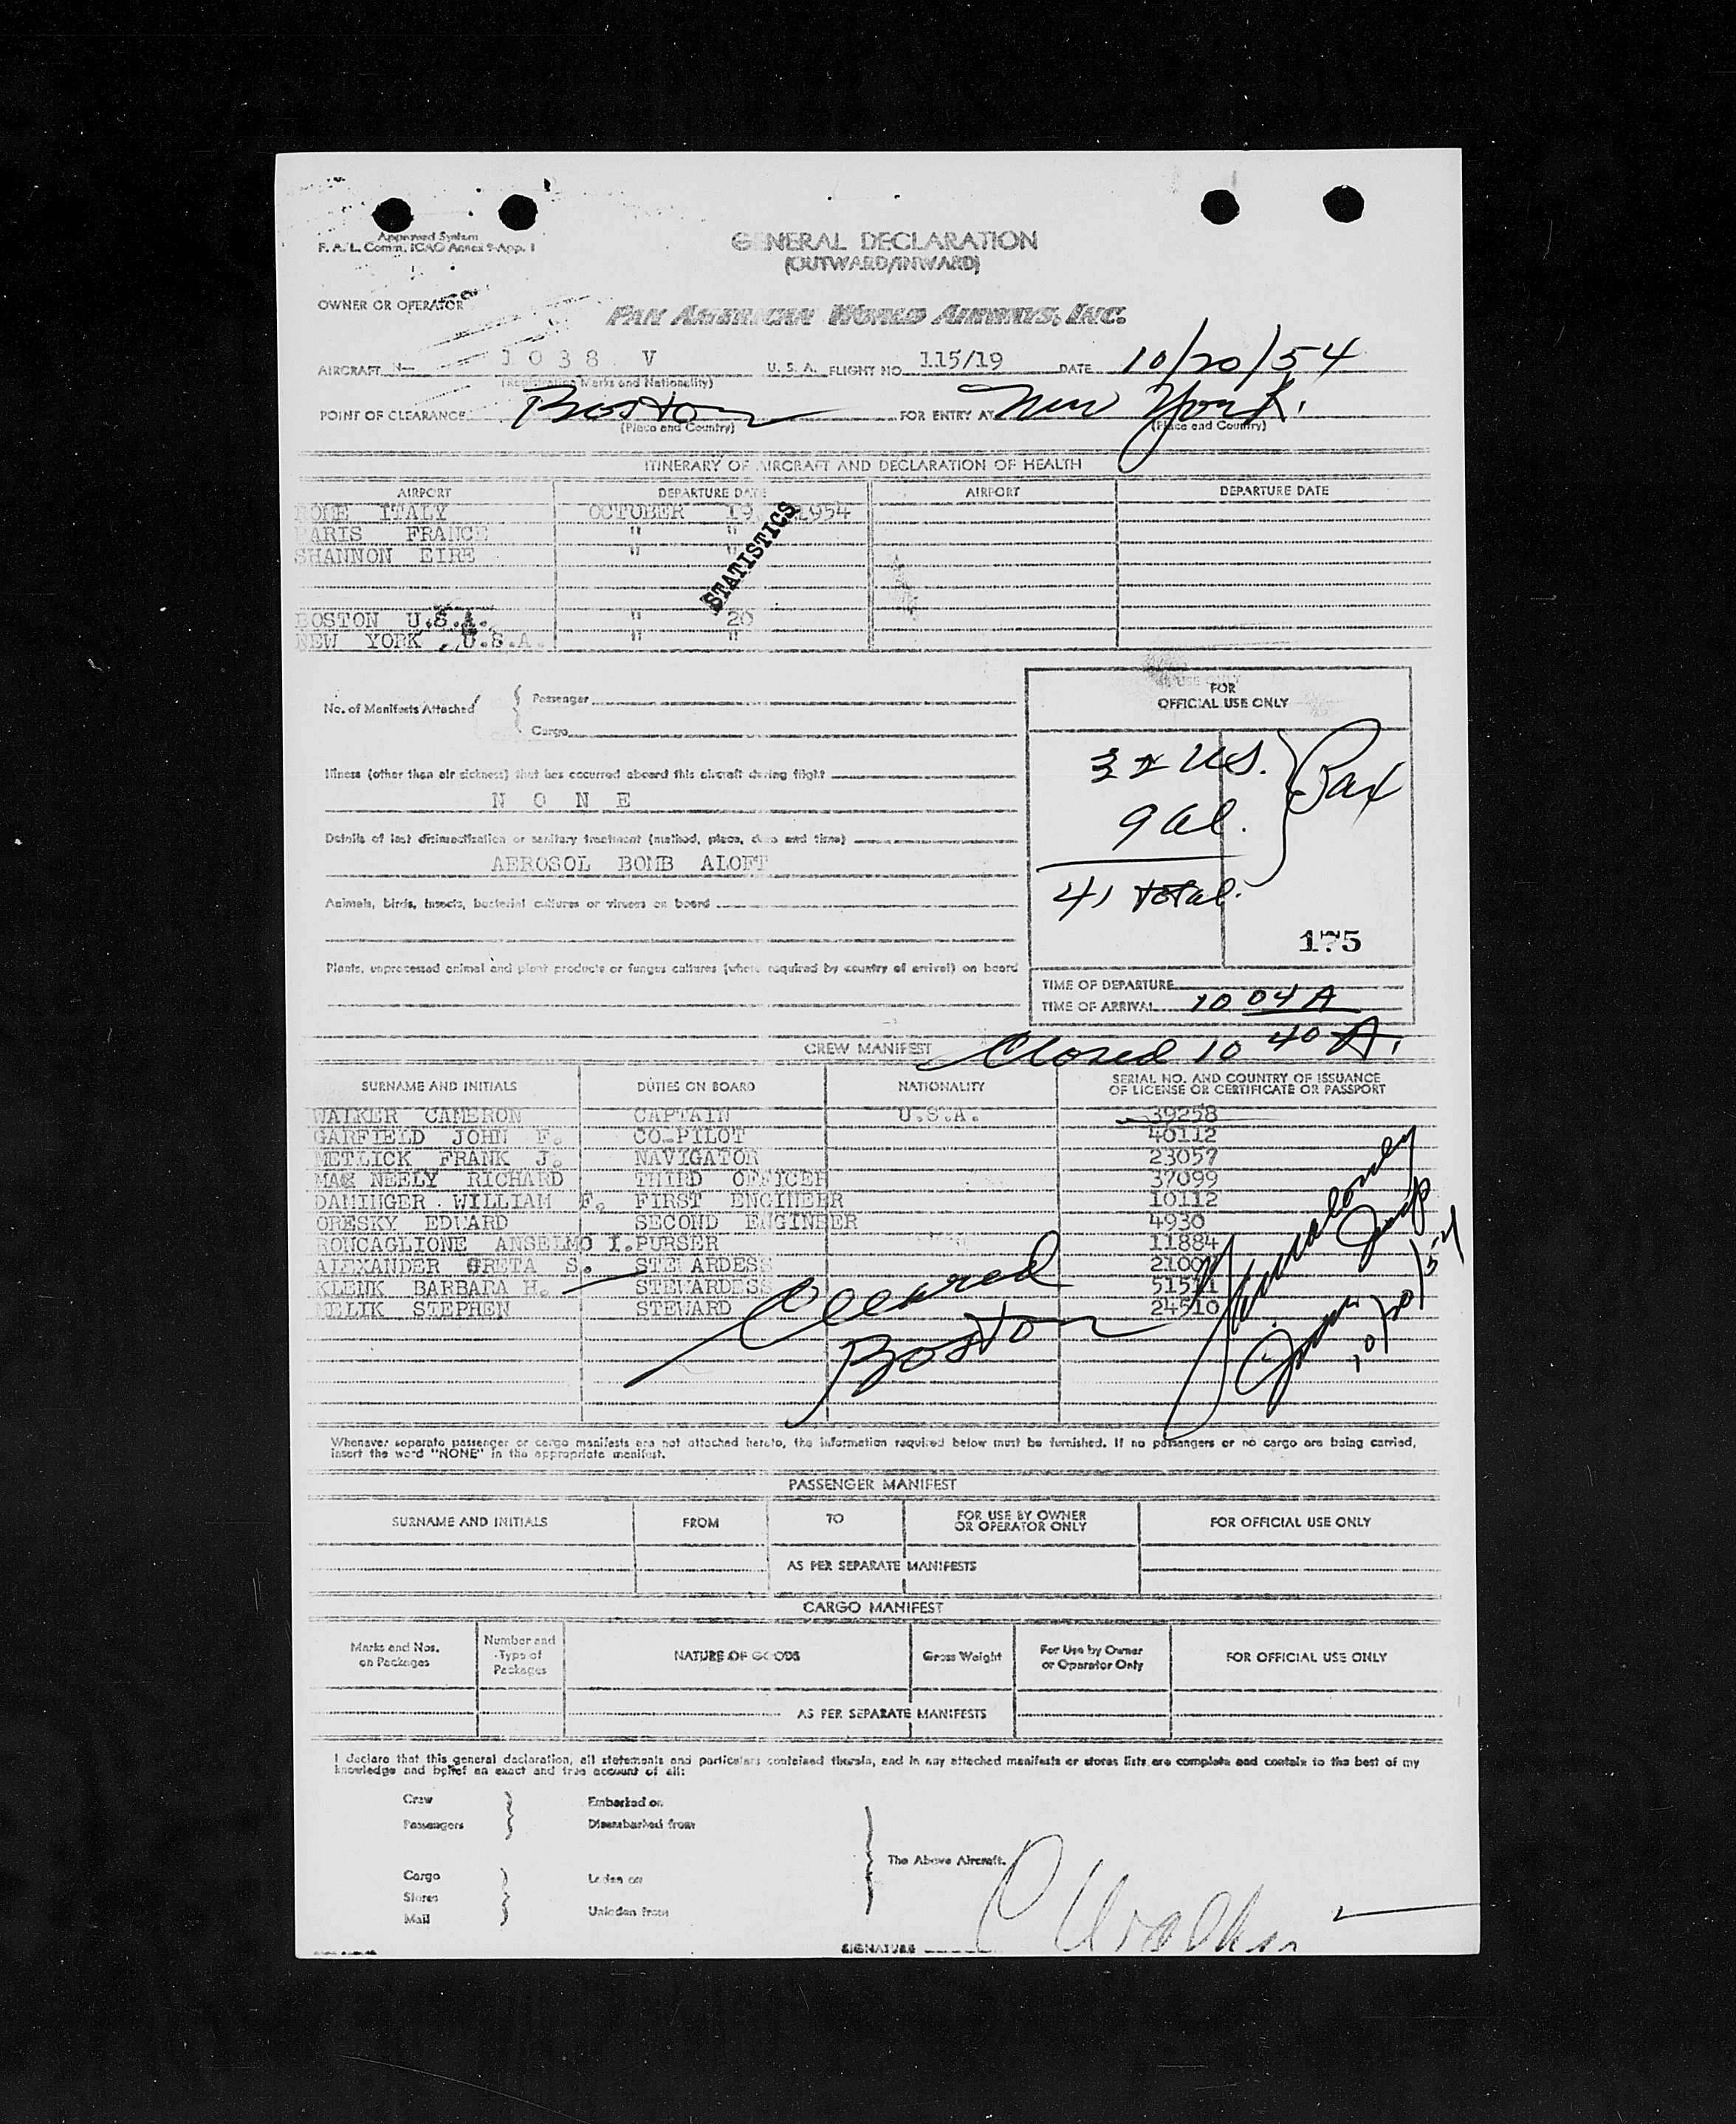 Approved System
F. A. L. Comm. ICAO Annex 9-App. 1
GENERAL DECLARATION
(OUTWARD/INWARD)
OWNER OR OPERATOR
PAN AMERICAN WORLD AIRWAYS, INC.
AIRCRAFT N- 1 0 3 8 V U. S. A. FLIGHT NO. 115/19 DATE 10/20/54
(Registration Marks and Nationality)
POINT OF CLEARANCE Boston FOR ENTRY AT New York.
(Place and Country) (Place and Country)
ITINERARY OF AIRCRAFT AND DECLARATION OF HEALTH
AIRPORT DEPARTURE DATE AIRPORT DEPARTURE DATE
ROME ITALY OCTOBER 19 1954
PARIS FRANCE " "
SHANNON EIRE " "
STATISTICS
BOSTON U.S.A. " 20
NEW YORK U.S.A. " "
No. of Manifests Attached
Passenger
Cargo
FOR
OFFICIAL USE ONLY
32 US. Pax
9 al.
41 total.
175
TIME OF DEPARTURE
TIME OF ARRIVAL 10 04 A
Illness (other than air sickness) that has occurred aboard this aircraft during flight
N O N E
Details of last disinsectization or sanitary treatment (method, place, date and time)
AEROSOL BOMB ALOFT
Animals, birds, insects, bacterial cultures or viruses on board
Plants, unprocessed animal and plant products or fungus cultures (where required by country of arrival) on board
CREW MANIFEST Closed 10 40 A.
SURNAME AND INITIALS DUTIES ON BOARD NATIONALITY SERIAL NO. AND COUNTRY OF ISSUANCE
OF LICENSE OR CERTIFICATE OR PASSPORT
WALKER CAMERON CAPTAIN U.S.A. 39258
GARFIELD JOHN F. CO-PILOT 40112
METLICK FRANK J. NAVIGATOR 23057
MAC NEELY RICHARD THIRD OFFICER 37099
DANINGER WILLIAM F. FIRST ENGINEER 10112
ORESKY EDWARD SECOND ENGINEER 4930
RONCAGLIONE ANSELMO I. PURSER 11884
ALEXANDER GRETA S. STEWARDESS 2100
KLENK BARBARA H. STEWARDESS
MELIK STEPHEN STEWARD 24510
Cleared
Boston
10/20/54
Whenever separate passenger or cargo manifests are not attached hereto, the information required below must be furnished. If no passengers or no cargo are being carried,
insert the word "NONE" in the appropriate manifest.
PASSENGER MANIFEST
SURNAME AND INITIALS FROM TO FOR USE BY OWNER
OR OPERATOR ONLY FOR OFFICIAL USE ONLY
AS PER SEPARATE MANIFESTS
CARGO MANIFEST
Marks and Nos.
on Packages
Number and
Type of
Packages
NATURE OF GOODS
Gross Weight
For Use by Owner
or Operator Only
FOR OFFICIAL USE ONLY
AS PER SEPARATE MANIFESTS
I declare that this general declaration, all statements and particulars contained therein, and in any attached manifests or stores lists are complete and contain to the best of my
knowledge and belief an exact and true account of all:
Crew Embarked on
Passengers Disembarked from
The Above Aircraft.
Cargo Laden on
Stores
Mail Unladen from
SIGNATURE C Walker